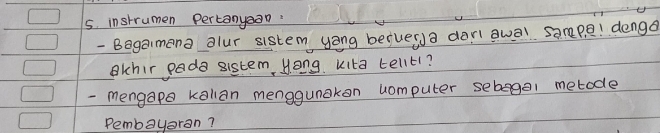 5. instrumen Pertanyaan :
- Bagaimana alur sistem yang bekerja dari awal sampai denga
akhir pada sistem yang kita teliti?
- mengapa kalian menggunakan komputer sebagai metode
Pembayaran ?